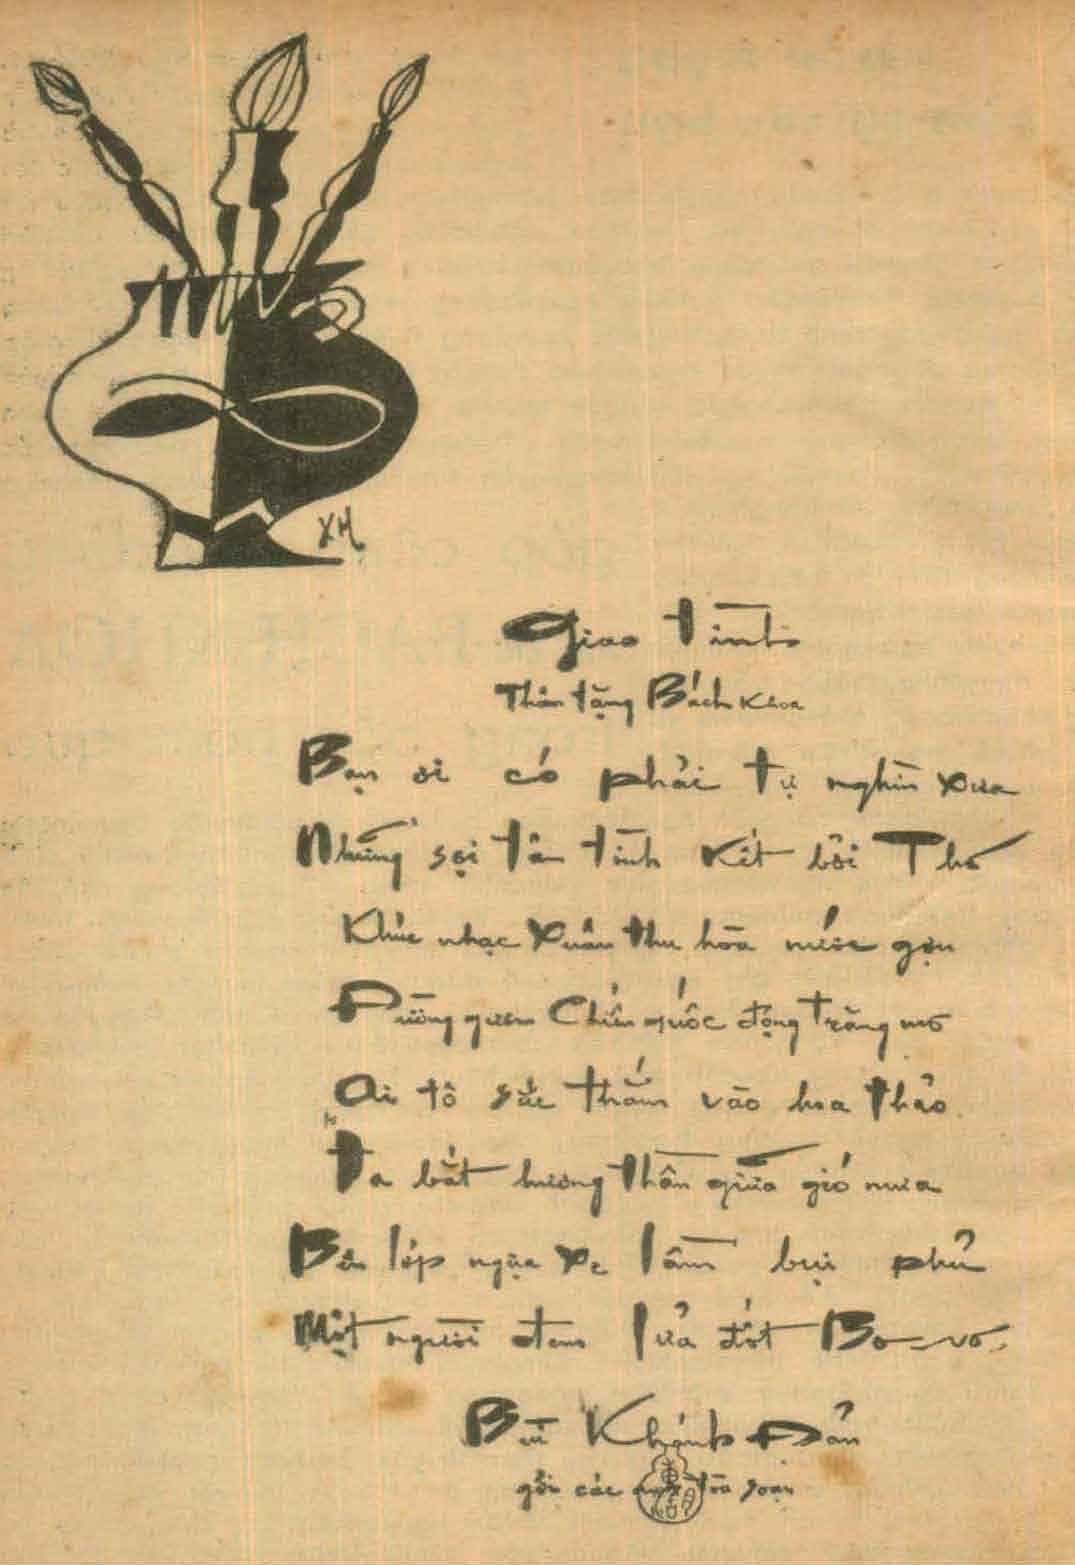 XH
Giao tình
Thân tặng Bách Khoa
Bạn ơi có phải tự nghìn xưa
Những sợi tân tình kết bởi Thơ
Khúc nhạc Xuân thu hòa nước gợn
Đường Chiến quốc động Trăng mơ
Ai tô sắc thắm vào hoa thảo
Ta bắt hương thần giữa gió mưa
Bên lớp ngựa xe lầm bụi phủ
Một người đem lửa đốt Bơ-vơ.
Bùi Khánh Đản
gửi các tòa soạn